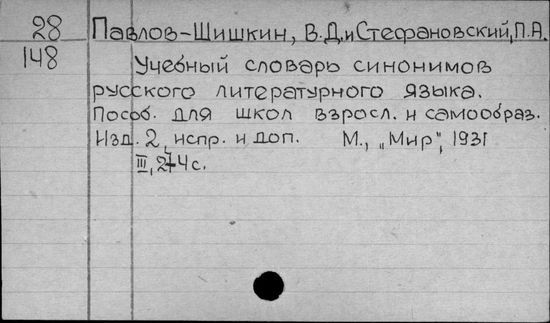 28 Павлов-Шишкин, В.Д. и Стефановский, П.А.
148 Учебный словарь синонимов
русского литературного языка.
Пособ. для школ взросл. и самообраз.
Изд. 2, испр. и доп. М., „Мир", 1931
III, 274 с.